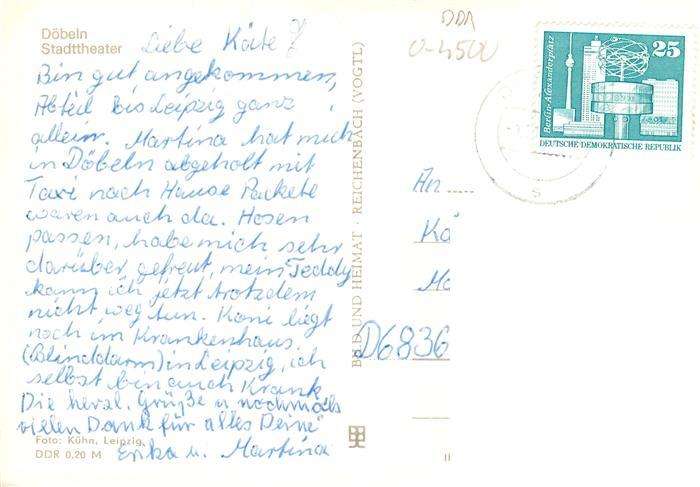 Döbeln
Stadttheater
Liebe Käte!
Bin gut angekommen,
Abteil bis Leipzig ganz
allein. Martina hat mich
in Döbeln abgeholt mit
Taxi nach Hause Pakete
waren auch da. Hosen
passen, habe mich sehr
darüber gefreut, mein Teddy
kann ich jetzt trotzdem
nicht weg tun. Koni liegt
noch im Krankenhaus.
(Blinddarm) in Leipzig, ich
selbst bin auch Krank
Die herzl. Grüße u nochmals
vielen Dank für alles Deine
Erika u. Martina
Foto: Kühn, Leipzig
DDR 0,20 M
BILD UND HEIMAT · REICHENBACH (VOGTL)
DDA
0-4500
25
Berlin-Alexanderplatz
DEUTSCHE DEMOKRATISCHE REPUBLIK
An
Kä
Ma
D6836